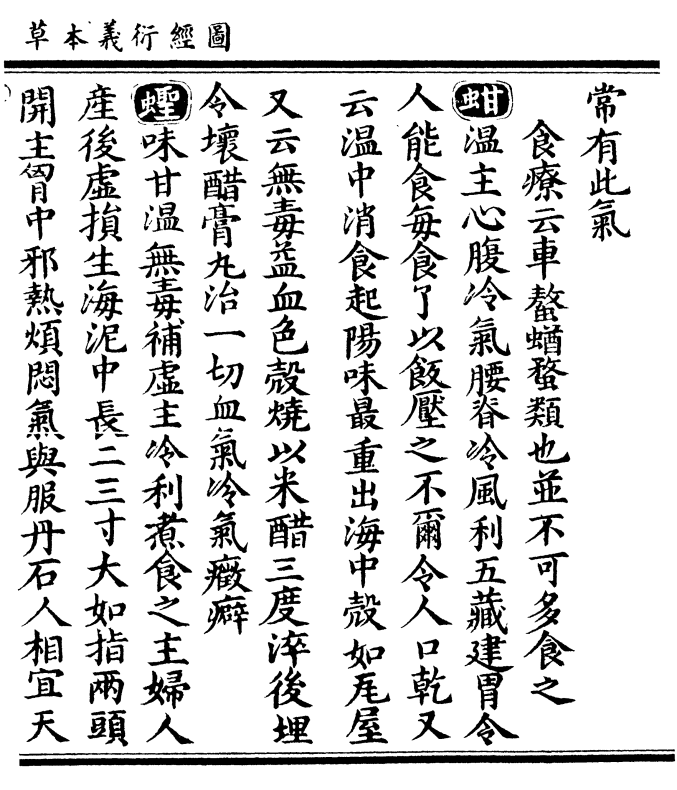 圖經衍義本草
常有此氣
食療云車螯蝤蝥類也並不可多食之
蚶溫主心腹冷氣腰脊冷風利五藏建胃令
人能食每食了以飯壓之不爾令人口乾又
云溫中消食起陽味最重出海中殼如瓦屋
又云無毒益血色殼燒以米醋三度淬後埋
令壞醋膏丸治一切血氣冷氣癥癖
蟶味甘溫無毒補虛主冷利煮食之主婦人
產後虛損生海泥中長二三寸大如指兩頭
開主胷中邪熱煩悶氣與服丹石人相宜天